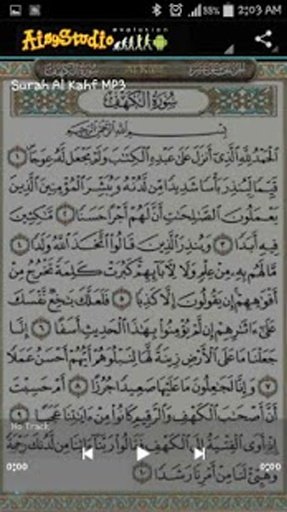 55% 2:03 AM
evolution
AinyStudio
سُورَةُ الكَهْفِ
Surah Al Kahf MP3
سُورَةُ الكَهْفِ
بِسْمِ اللَّهِ الرَّحْمَٰنِ الرَّحِيمِ
الْحَمْدُ لِلَّهِ الَّذِي أَنزَلَ عَلَىٰ عَبْدِهِ الْكِتَٰبَ وَلَمْ يَجْعَل لَّهُ عِوَجَا ١
قَيِّمًا لِّيُنذِرَ بَأْسًا شَدِيدًا مِّن لَّدُنْهُ وَيُبَشِّرَ الْمُؤْمِنِينَ الَّذِينَ
يَعْمَلُونَ الصَّٰلِحَٰتِ أَنَّ لَهُمْ أَجْرًا حَسَنًا ٢ مَّٰكِثِينَ
فِيهِ أَبَدًا ٣ وَيُنذِرَ الَّذِينَ قَالُوا اتَّخَذَ اللَّهُ وَلَدًا ٤
مَّا لَهُم بِهِ مِنْ عِلْمٍ وَلَا لِآبَائِهِمْ كَبُرَتْ كَلِمَةً تَخْرُجُ مِنْ
أَفْوَٰهِهِمْ إِن يَقُولُونَ إِلَّا كَذِبًا ٥ فَلَعَلَّكَ بَٰخِعٌ نَّفْسَكَ
عَلَىٰ ءَاثَٰرِهِمْ إِن لَّمْ يُؤْمِنُوا بِهَٰذَا الْحَدِيثِ أَسَفًا ٦ إِنَّا
جَعَلْنَا مَا عَلَى الْأَرْضِ زِينَةً لَّهَا لِنَبْلُوَهُمْ أَيُّهُمْ أَحْسَنُ عَمَلًا
٧ وَإِنَّا لَجَٰعِلُونَ مَا عَلَيْهَا صَعِيدًا جُرُزًا ٨ أَمْ حَسِبْتَ
أَنَّ أَصْحَٰبَ الْكَهْفِ وَالرَّقِيمِ كَانُوا مِنْ ءَايَٰتِنَا عَجَبًا ٩
No Track
إِذْ أَوَى الْفِتْيَةُ إِلَى الْكَهْفِ فَقَالُوا رَبَّنَا ءَاتِنَا مِن لَّدُنكَ رَحْمَةً
0:00 0:00
وَهَيِّئْ لَنَا مِنْ أَمْرِنَا رَشَدًا ١٠